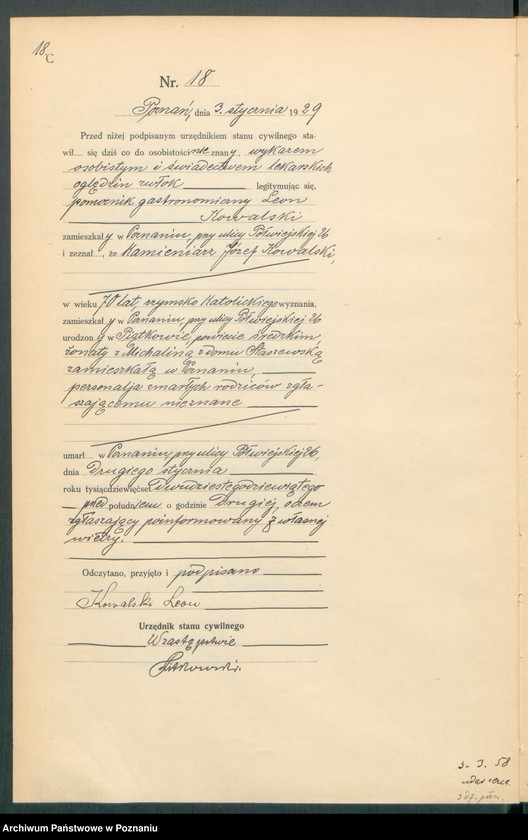 18
C
Nr. 18
Poznań, dnia 3. stycznia 1929
Przed niżej podpisanym urzędnikiem stanu cywilnego sta-
wił się dziś co do osobistości nieznany, wykazem
osobistym i świadectwem lekarskich
oględzin zwłok legitymując się,
pomocnik gastronomiczny Leon
Kowalski
zamieszkały w Poznaniu, przy ulicy Półwiejskiej 26
i zeznał, że Kamieniarz Józef Kowalski,
w wieku 70 lat, rzymsko katolickiego wyznania,
zamieszkały w Poznaniu, przy ulicy Półwiejskiej 26
urodzony w Piątkowie, powiecie średzkim,
żonaty z Michaliną z domu Staszewską
zamieszkałą w Poznaniu,
personalja zmarłych rodziców zgła-
szającemu nieznane
umarł w Poznaniu, przy ulicy Półwiejskiej 26,
dnia Drugiego stycznia
roku tysiącdziewięćset Dwudziestegodziewiątego
przed południem o godzinie Drugiej, o czem
zgłaszający poinformowany z własnej
wiedzy.
Odczytano, przyjęto i podpisano
Kowalski Leon
Urzędnik stanu cywilnego
W zastępstwie
3. 3. 58
Archiwum Państwowe w Poznaniu